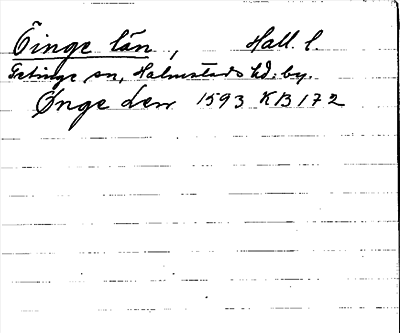 Öinge län, Hall. l.
Getinge sn, Halmstads hd: by.
Ønge Len 1593 KB 172